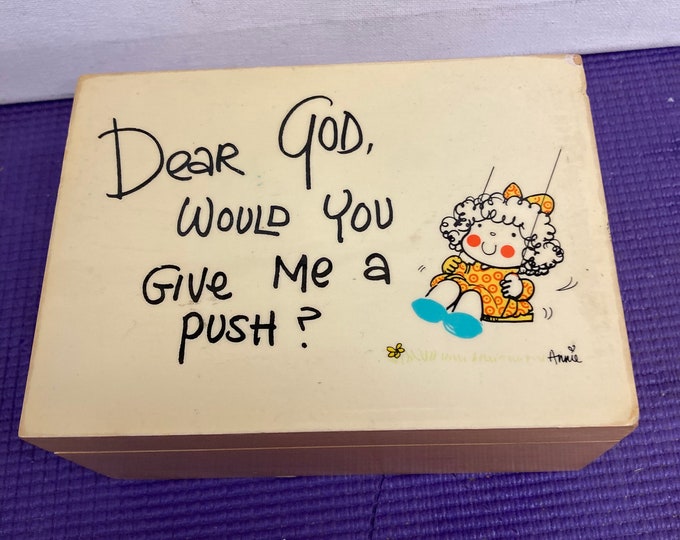 Dear God,
would you
Give Me a
push?
Annie